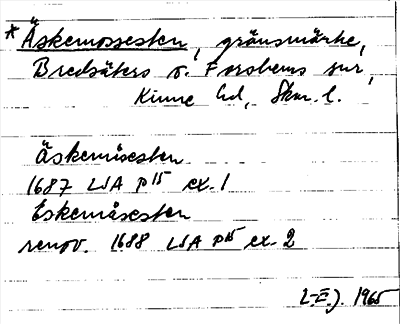 * Äskemossesten, gränsmärke,
Bredsäters o. Forshems snr,
Kinne hd, Skar. l.
Äskemåsesten
1687 LSA P15 ex. 1
Eskemåsesten
renov. 1688 LSA P15 ex. 2
1965